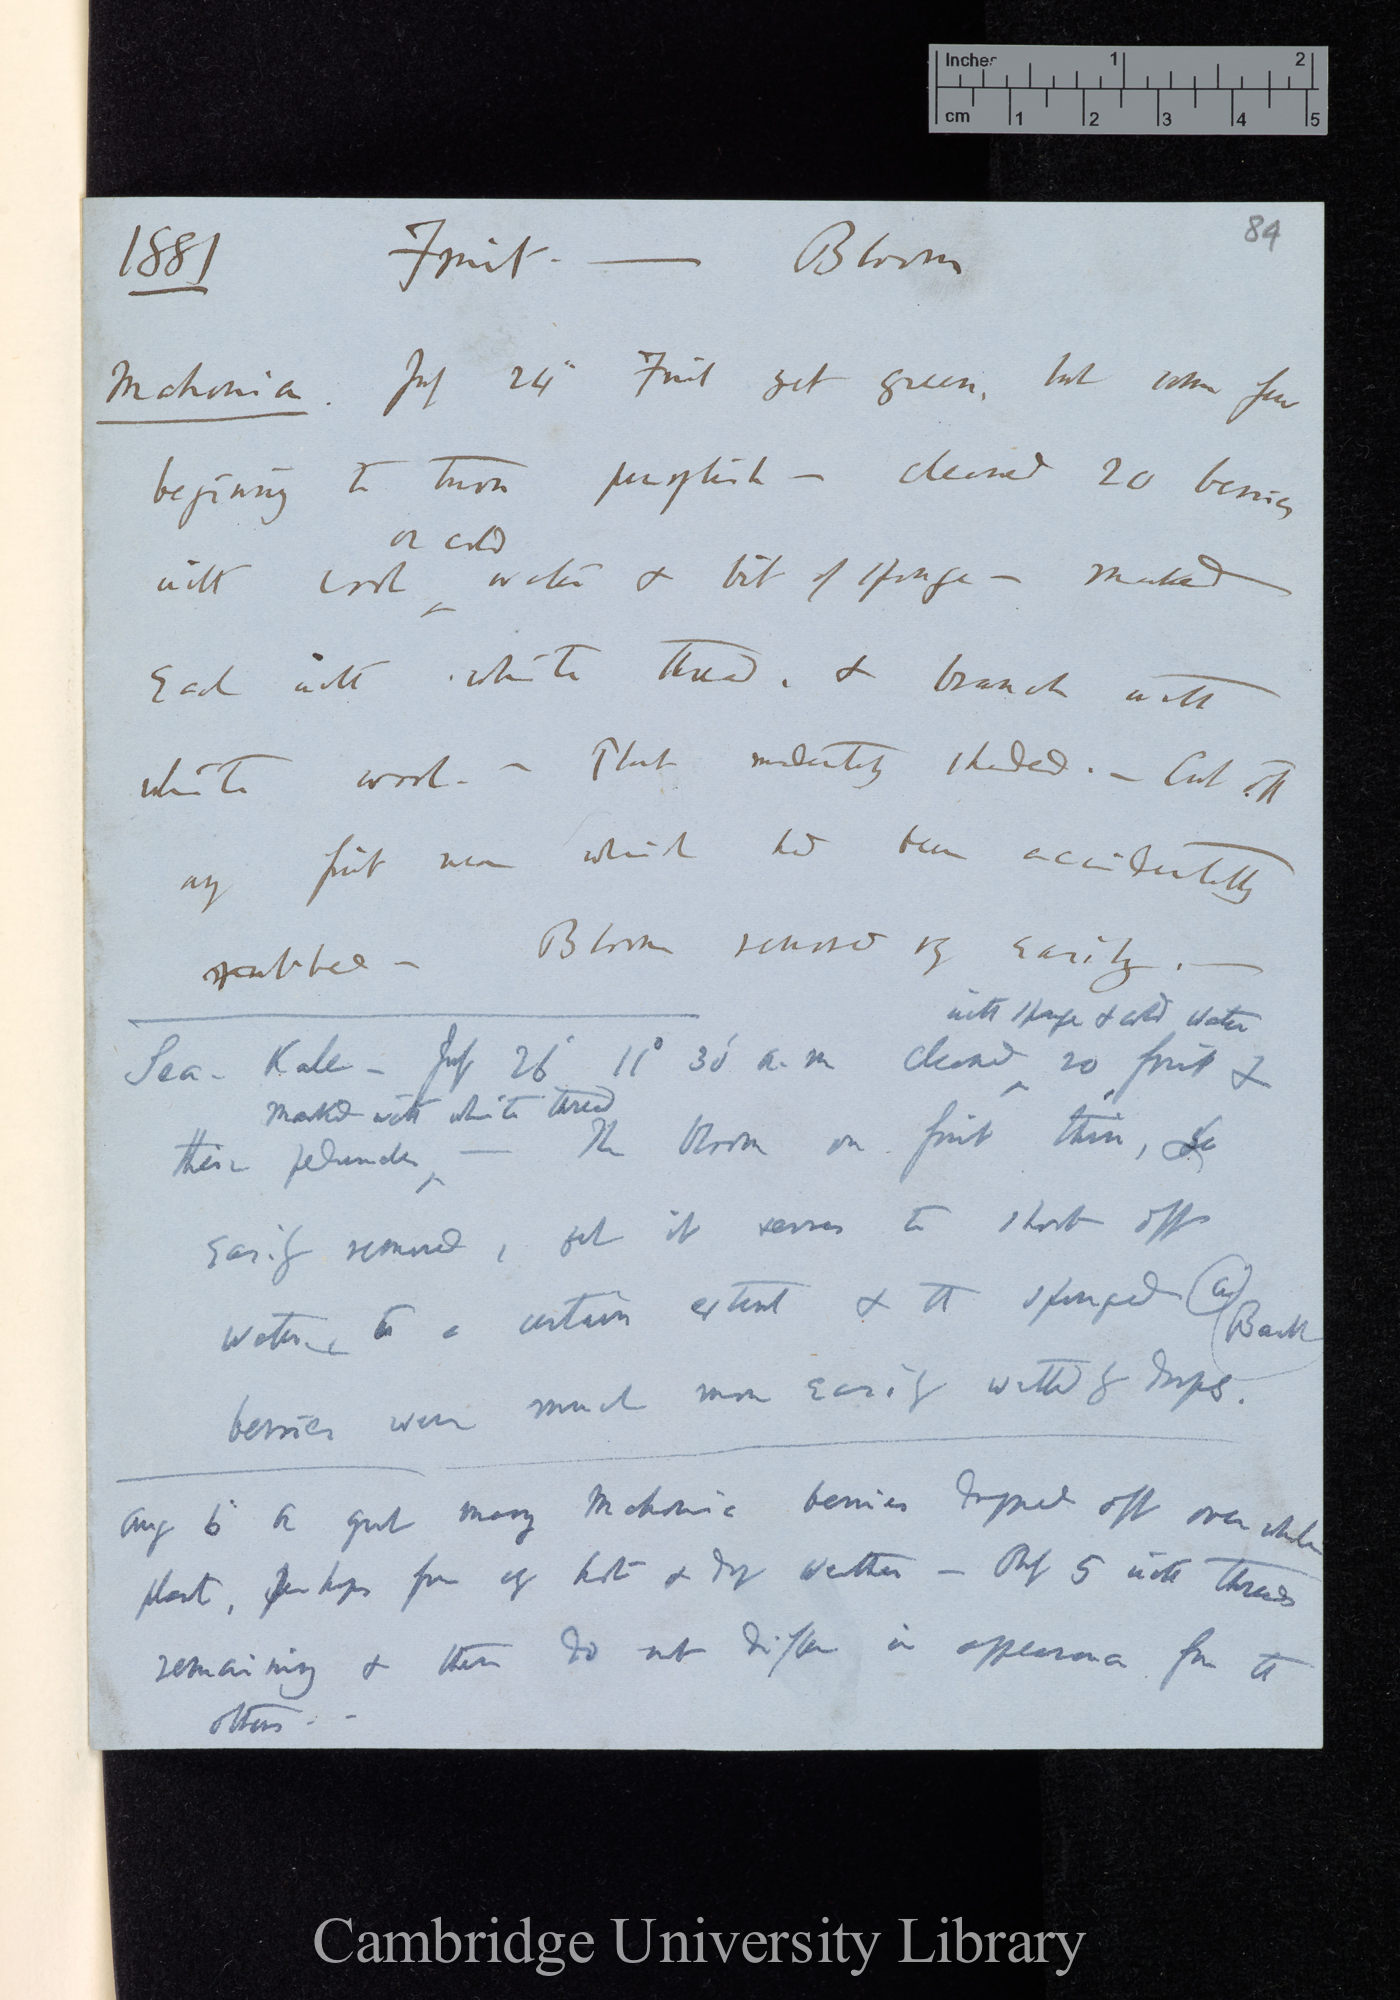 Inches 1 2
cm 1 2 3 4 5
84
1881 Fruit. — Bloom
Mahonia. July 24th Fruit yet green, but some few
beginning to turn purplish — cleaned 20 berries
or cold
with cool ^ water & bit of sponge — marked
Each with white thread, & branch with
white wool. — Plant moderately shaded. — Cut off
any fruit near which had been accidentally
rubbed — Bloom removed vy easily. —
with sponge & cold water
Sea-Kale — July 26 11° 30' a.m cleaned ^ 20 fruit &
marked with white thread
their peduncles ^ — The bloom on fruit thin, &
Easily removed, yet it serves to shoot off
water to a certain extent & the sponged
Back
berries were much more easily wetted by drops.
Aug 6 A great many Mahonia berries dropped off over whole
plant, perhaps from vy hot & dry weather — Only 5 with threads
remaining & these do not differ in appearance from the
others. —
Cambridge University Library